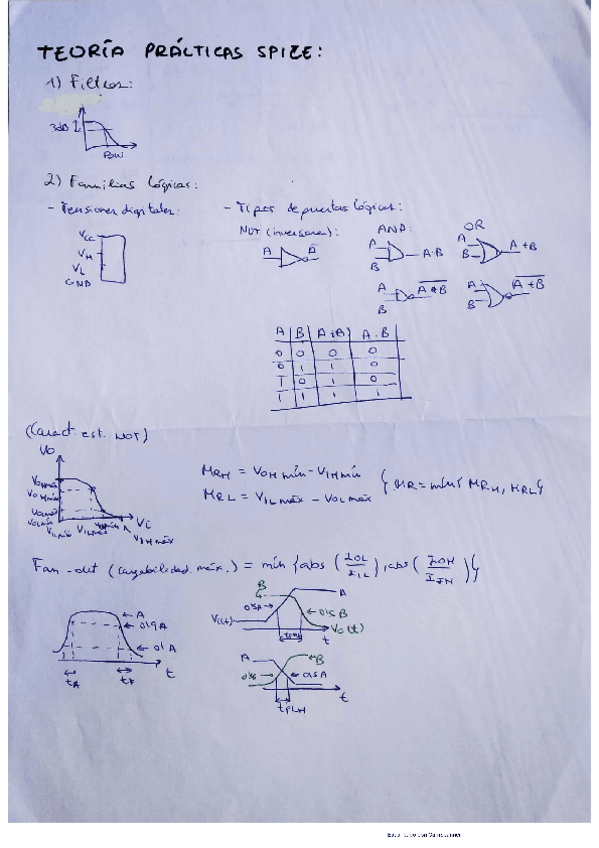 TEORÍA PRÁCTICAS SPICE:
1) Filtros:
3dB
2) Familias lógicas:
- Tensiones digitales:
- Tipos de puertas lógicas:
VCC
VH
VL
GND
NOT (inversora):
A
A̅
AND:
A
B
A·B
OR
A
B
A+B
A
B
A
B
A+B
A B A+B A·B
0 0 0 0
0 1 1 0
1 0 1 0
1 1 1 1
(Caract. est. NOT)
VO
VOHmáx
VOHmín
VOLmáx
VOLmín
VILmín
VILmáx
VIHmáx
Vi
MRH = VOHmín - VIHmín
MRL = VILmáx - VOLmáx
} MR = mín{MRH, MRL}
Fan-out (cargabilidad máx.) = mín {abs (IOL/IIL), abs (IOH/IIH)}
A
0'9A
0'1A
tR
tF
t
B
A
0'5A
0'5B
Vi(t)
Vo(t)
tPHL
t
A
B
0'5B
0'5A
tPLH
t